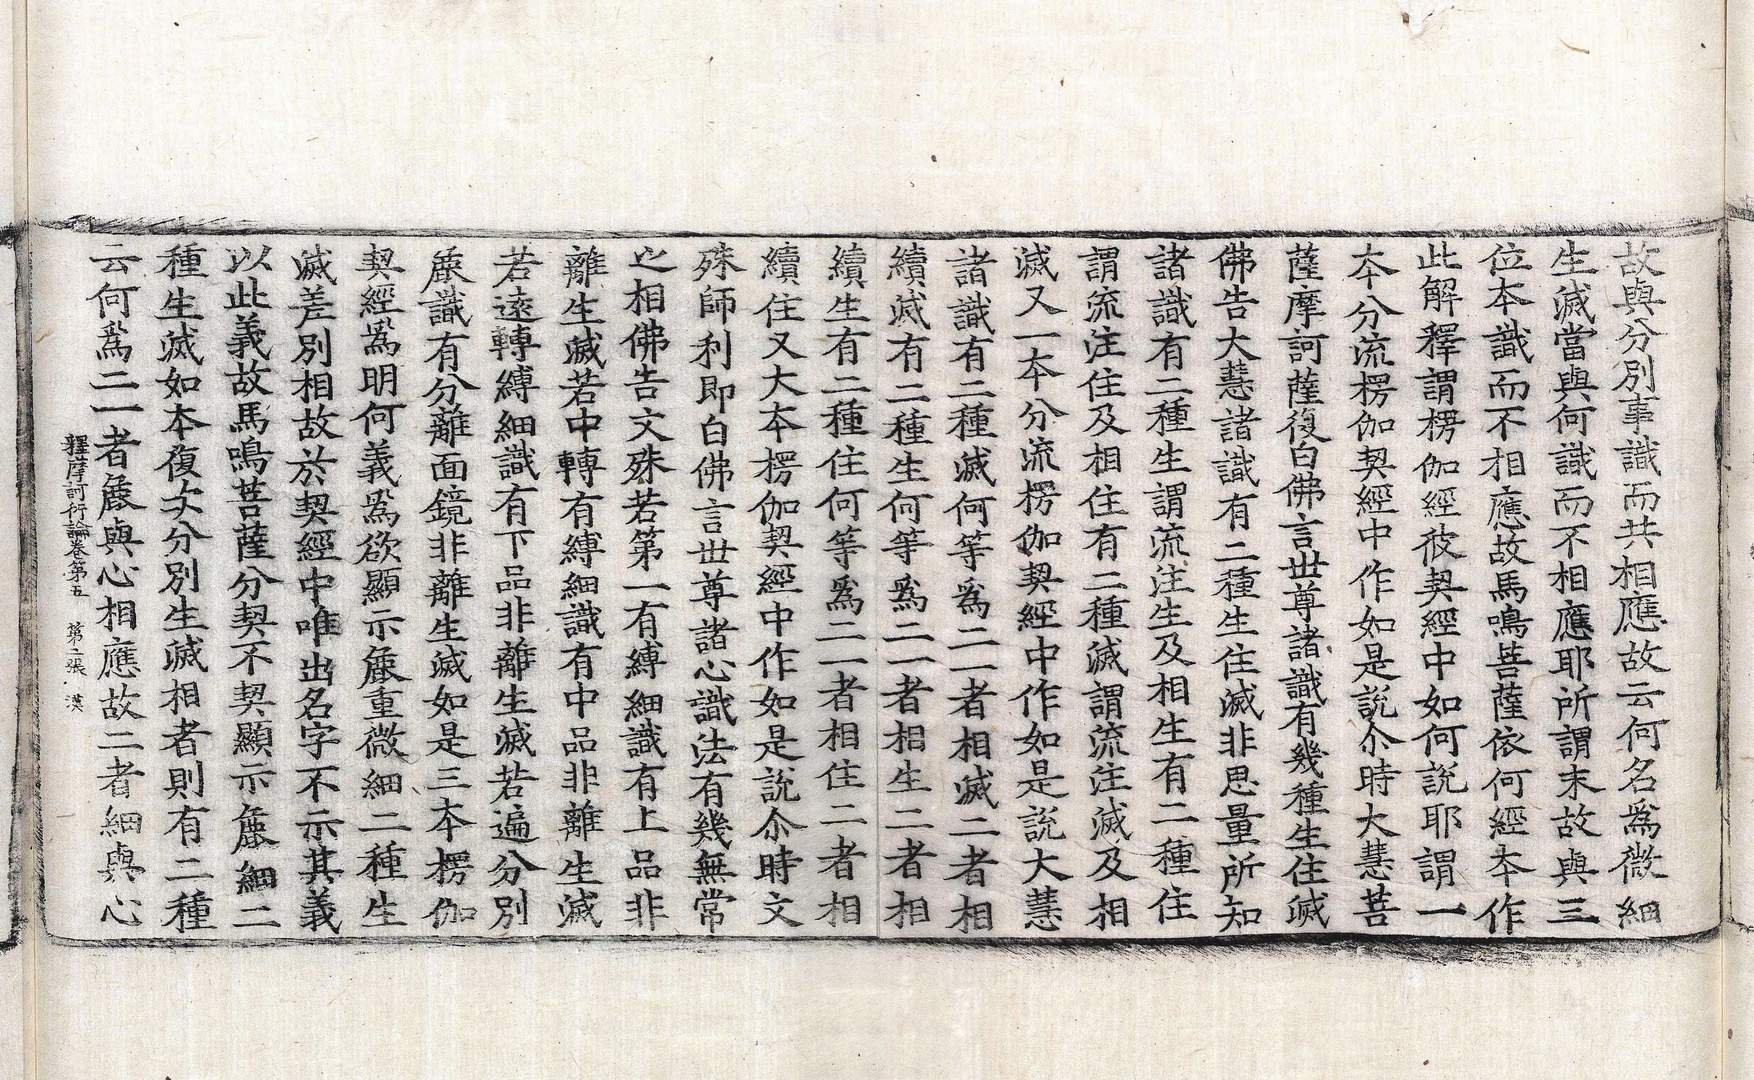 故與分別事識而共相應故云何名爲微細
生滅當與何識而不相應耶所謂末故與三
位本識而不相應故馬鳴菩薩依何經本作
此解釋謂楞伽經彼契經中如何說耶謂一
夲分流楞伽契經中作如是說尒時大慧菩
薩摩訶薩復白佛言世尊諸識有幾種生住滅
佛告大慧諸識有二種生住滅非思量所知
諸識有二種生謂流注生及相生有二種住
謂流注住及相住有二種滅謂流注滅及相
滅又一夲分流楞伽契經中作如是說大慧
諸識有二種滅何等爲二一者相滅二者相
續滅有二種生何等爲二一者相生二者相
續生有二種住何等爲二一者相住二者相
續住又大本楞伽契經中作如是說尒時文
殊師利即白佛言世尊諸心識法有幾無常
之相佛告文殊若第一有縛細識有上品非
離生滅若中轉有縛細識有中品非離生滅
若遠轉縛細識有下品非離生滅若遍分別
麁識有分離面鏡非離生滅如是三本楞伽
契經爲明何義爲欲顯示麁重微細二種生
滅差別相故於契經中唯出名字不示其義
以此義故馬鳴菩薩分契不契顯示麁細二
種生滅如本復次分別生滅相者則有二種
云何爲二一者麁與心相應故二者細與心
釋摩訶衍論卷第五 第二張 漢